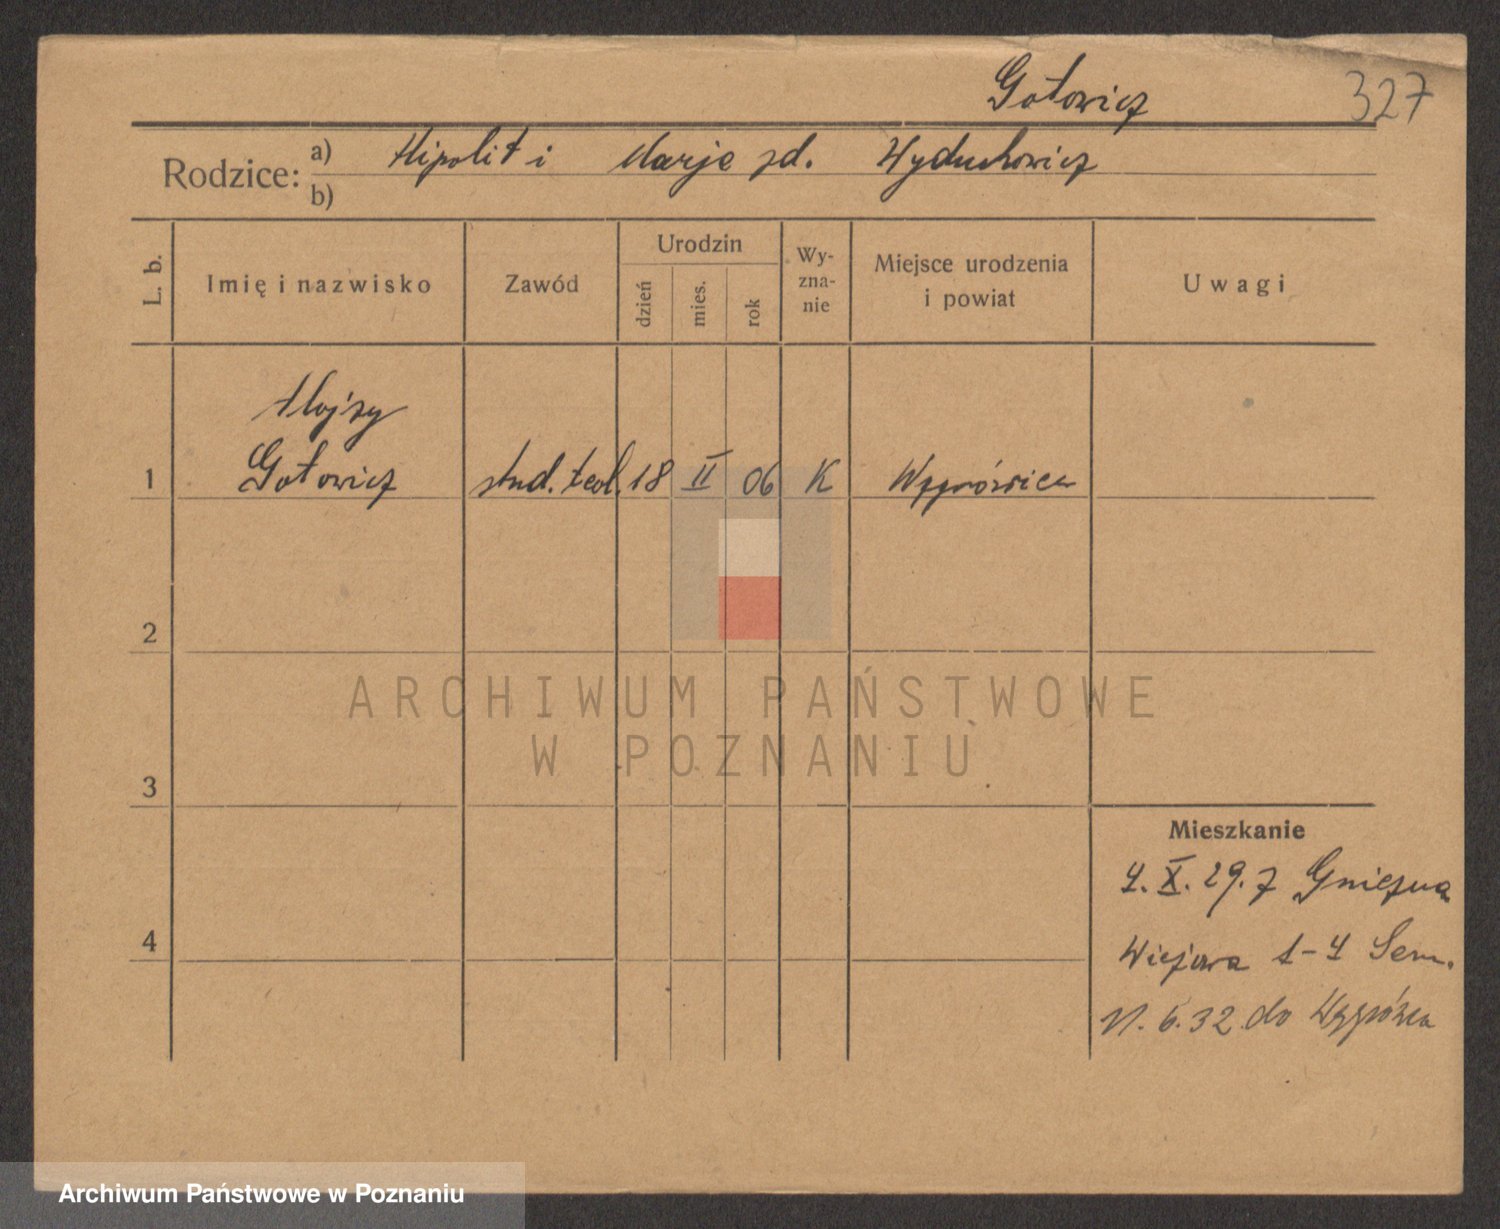 Gotowicz 327
Rodzice: a) Hipolit i Marje zd. Wyduchowicz
b)
L. b.
Imię i nazwisko
Zawód
Urodzin
dzień
mies.
rok
Wy-
zna-
nie
Miejsce urodzenia
i powiat
Uwagi
Alojzy
1 Gotowicz stud. teol. 18 II 06 K
2
3
4
ARCHIWUM PAŃSTWOWE
W POZNANIU
Mieszkanie
4. X. 29. z Gniezna
1-4 Sem.
6. 32 do
Archiwum Państwowe w Poznaniu